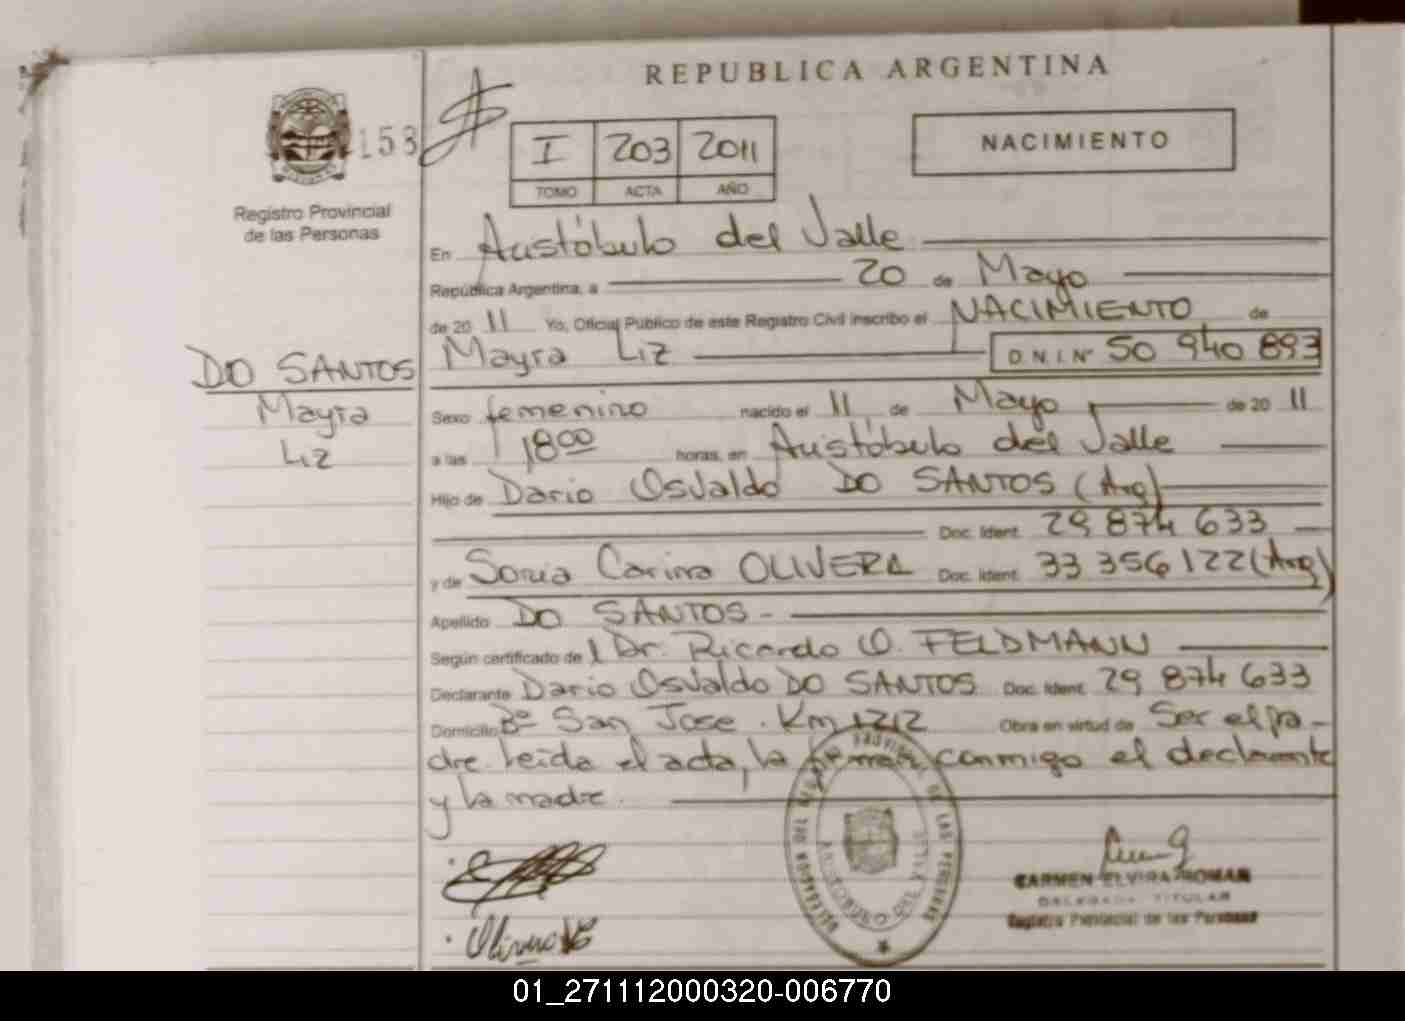 REPUBLICA ARGENTINA
153
I 203 2011
TOMO ACTA AÑO
NACIMIENTO
Registro Provincial
de las Personas
En Aristóbulo del Valle
República Argentina, a 20 de Mayo
de 20 11 Yo, Oficial Público de este Registro Civil inscribo el NACIMIENTO de
Mayra Liz D.N.I. Nº 50 940 893
DO SANTOS
Mayra
Liz
Sexo femenino nacido el 11 de Mayo de 20 11
a las 18 00 horas, en Aristóbulo del Valle
Hijo de Dario Osvaldo DO SANTOS (Arg)
Doc. Ident. 29 874 633
y de Sonia Carina OLIVERA Doc. Ident. 33 356 122 (Arg)
Apellido DO SANTOS -
Según certificado de l Dr. Ricardo O. FELDMANN
Declarante Dario Osvaldo DO SANTOS Doc. Ident. 29 874 633
Domicilio Bº San Jose . Km 1212 Obra en virtud de Ser el pa-
dre. Leida el acta, la firman conmigo el declarante
y la madre.
DELEGACION DEL REGISTRO PROVINCIAL DE LAS PERSONAS
ARISTOBULO DEL VALLE
CARMEN ELVIRA ROMAN
DELEGADA TITULAR
Registro Provincial de las Personas
Olivera
01_271112000320-006770